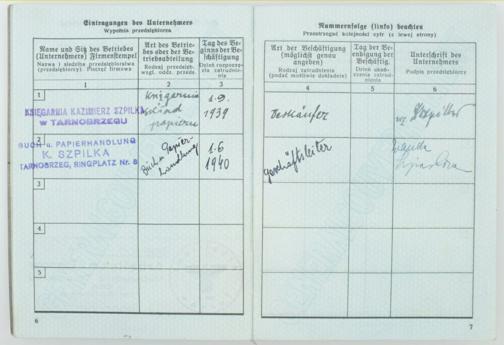 Eintragungen des Unternehmers
Wypełnia przedsiębiorca
Name und Sitz des Betriebes
(Unternehmers) Firmenstempel
Nazwa i siedziba przedsiębiorstwa
(przedsiębiorcy) Pieczęć firmowa
Art des Betrie-
bes oder der Be-
triebsabteilung
Rodzaj przedsięb.
wzgl. oddz. przeds.
Tag des Be-
ginns der Be-
schäftigung
Dzień rozpoczę-
cia zatrudnie-
nia
1
2
3
1
KSIĘGARNIA KAZIMIERZ SZPILKA
w TARNOBRZEGU
Księgarnia
skład
papieru
1.9.
1939
2
BUCH u. PAPIERHANDLUNG
K. SZPILKA
TARNOBRZEG, RINGPLATZ Nr. 8
Buch u. Papier-
handlung
1.6
1940
3
4
5
6
Nummernfolge (links) beachten
Przestrzegać kolejności cyfr (z lewej strony)
Art der Beschäftigung
(möglichst genau
angeben)
Rodzaj zatrudnienia
(podać możliwie dokładnie)
Tag der
Beendigung
der
Beschäftig.
Dzień ukoń-
czenia zatrud-
nienia
Unterschrift des
Unternehmers
Podpis przedsiębiorcy
4
5
6
Verkäufer
Szpilka
Geschäftsleiter
Wanda
7